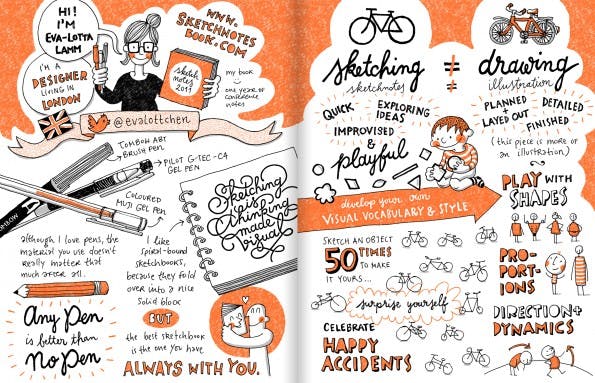 HI!
I'M
EVA-LOTTA
LAMM
I'M A
DESIGNER
LIVING IN
LONDON
WWW.
SKETCHNOTES
BOOK.COM
sketch
notes
2011
my book
one year of
conference
notes
@evalottchen
TOMBOW ABT
BRUSH PEN
PILOT G-TEC-C4
GEL PEN
COLOURED
MUJI GEL PEN
TOMBOW
Sketching
is
thinking
made
visual
although I love pens, the
material you use doesn't
really matter that
much after all.
I like
spiral-bound
sketchbooks,
because they fold
over into a nice
solid block
Any Pen
is better than
No Pen
BUT
the best sketchbook
is the one you have
ALWAYS WITH YOU.
sketching ≠ drawing
sketchnotes ≠ illustration
QUICK
EXPLORING
IDEAS
IMPROVISED &
playful
PLANNED +
LAYED OUT
DETAILED +
FINISHED
(this piece is more of
an illustration)
develop your own
VISUAL VOCABULARY & STYLE
PLAY WITH
SHAPES
SKETCH AN OBJECT
50 TIMES
TO MAKE
IT YOURS...
surprise yourself
CELEBRATE
HAPPY
ACCIDENTS
PRO-
PORT-
IONS
DIRECTION +
DYNAMICS